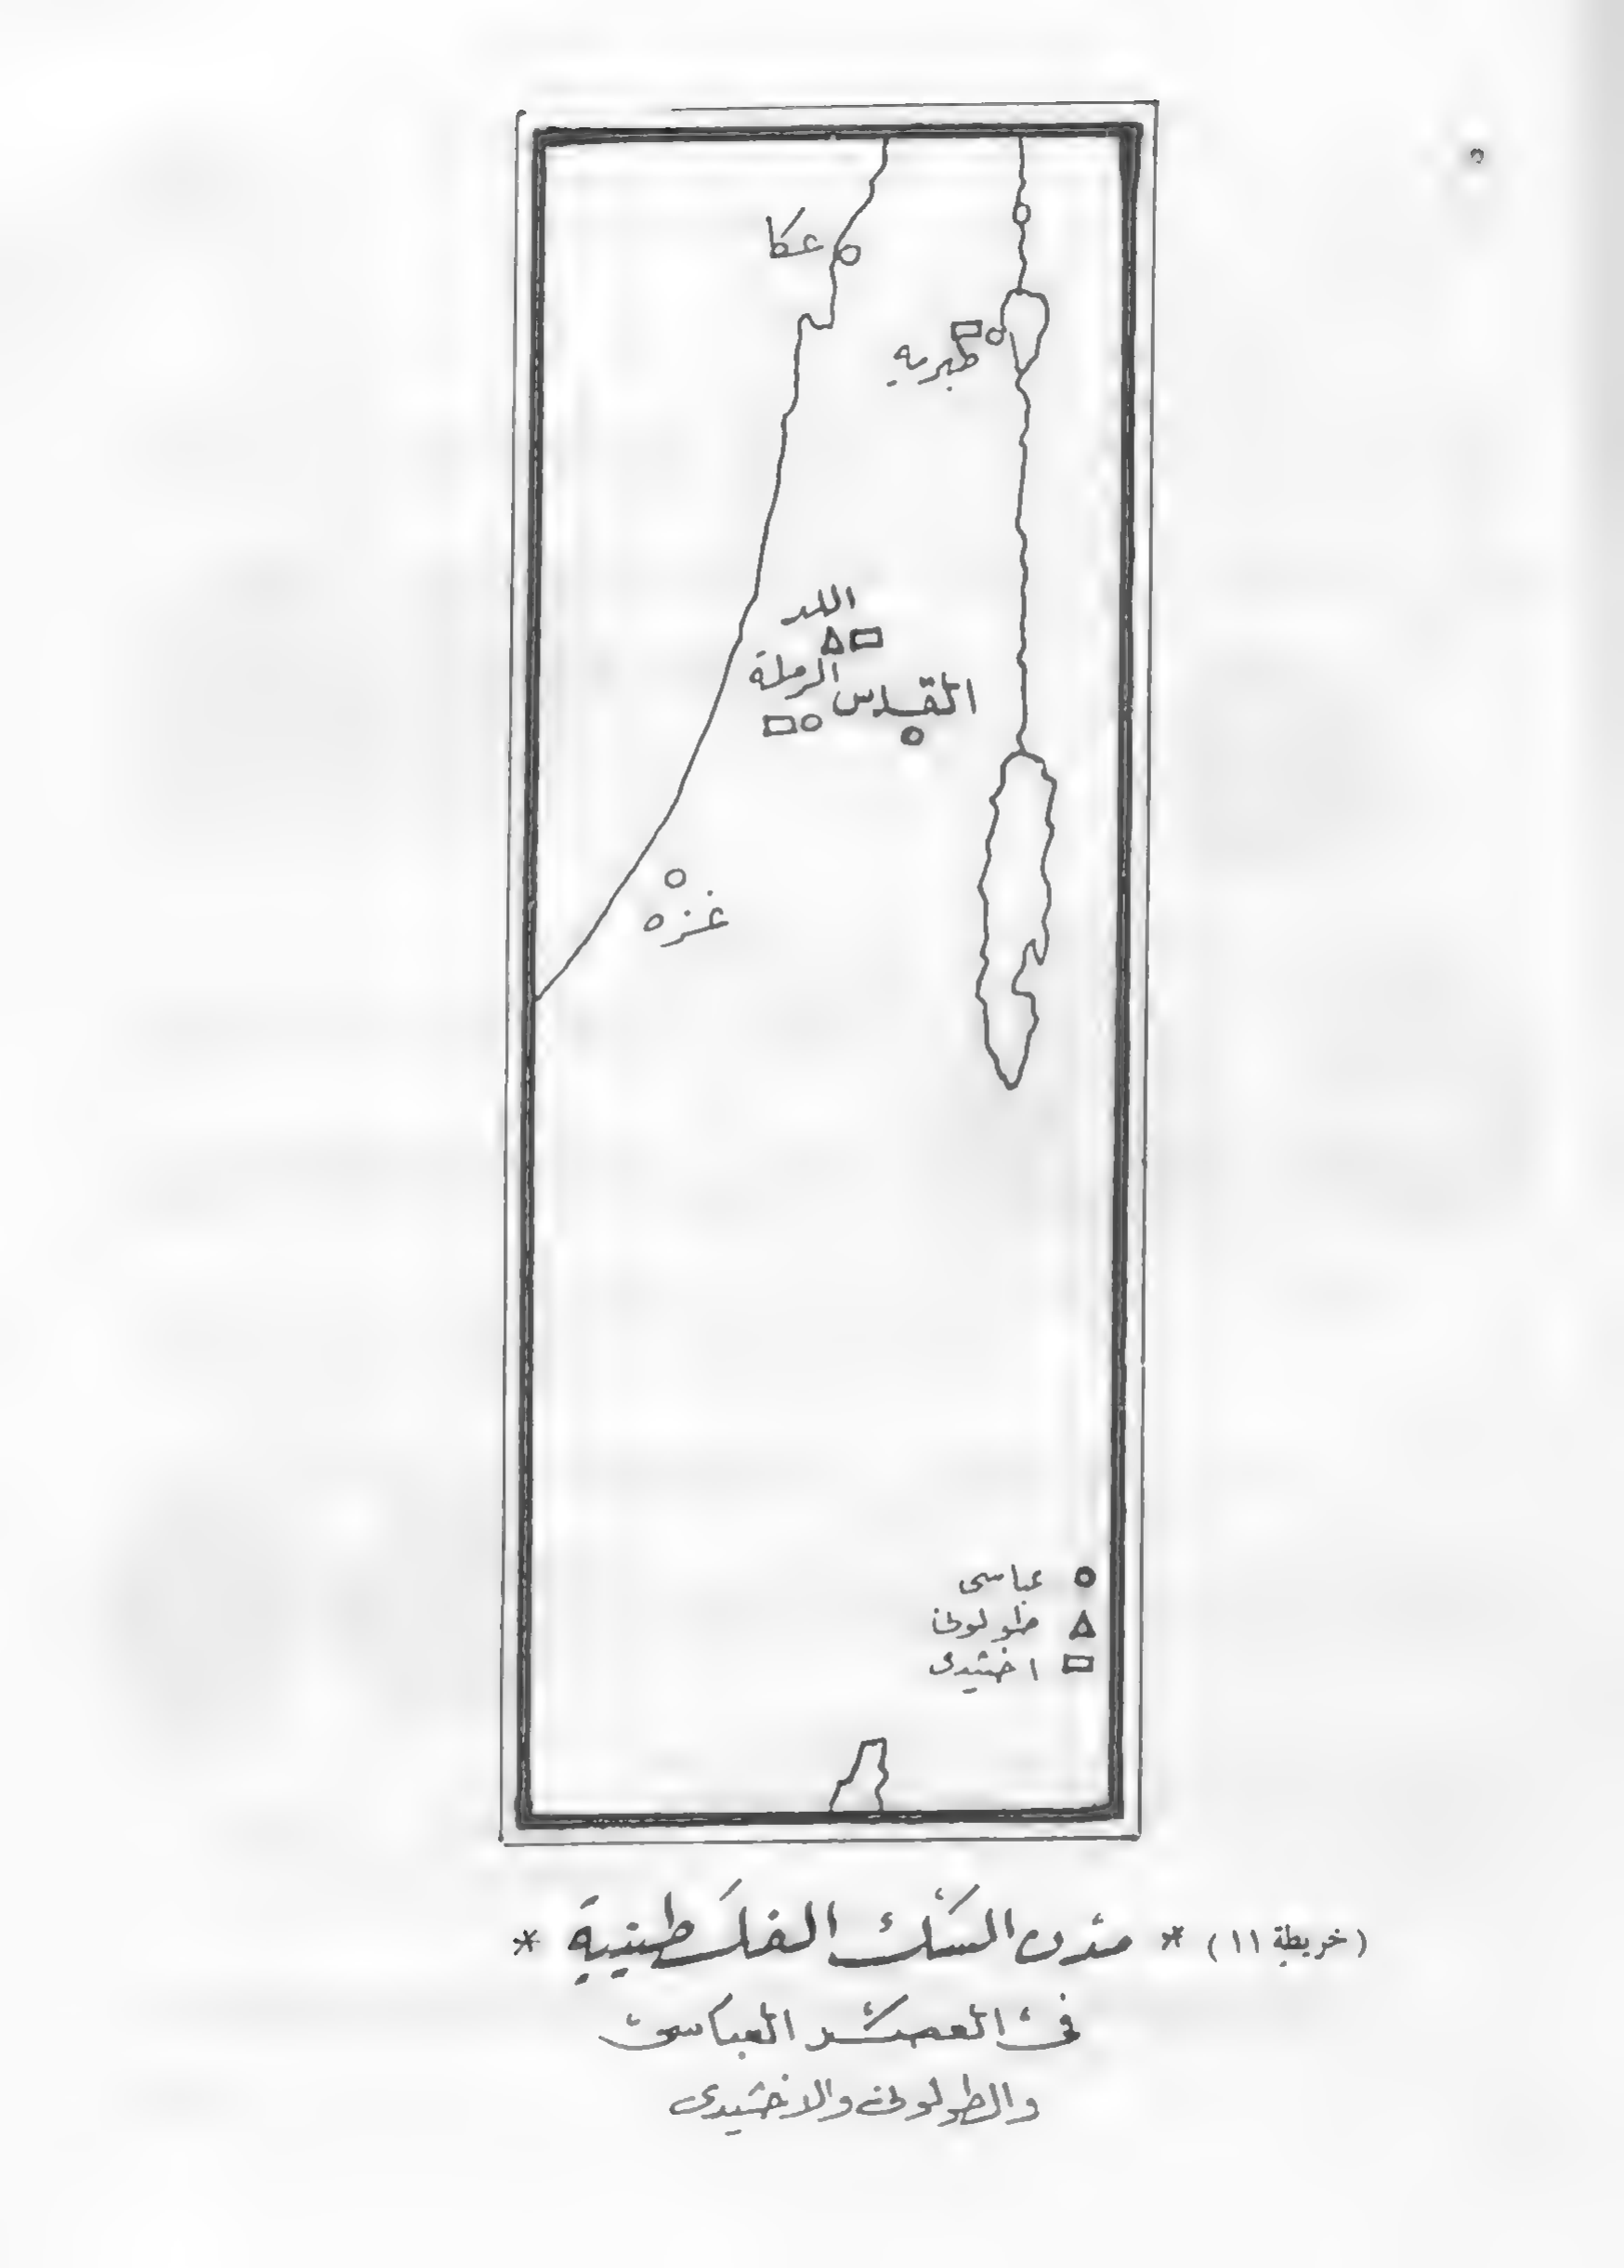 عكا
طبريه
اللد
الرملة
القدس
غزه
عباسى
طولونى
اخشيدى
(خريطة ١١) * مدن السك الفلسطينية *
فى العصر العباسى
والطولونى والاخشيدى